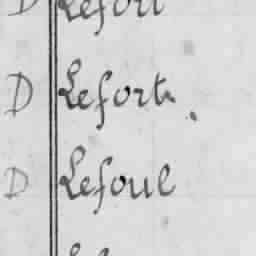 D Lefort
D Lefort
D Lefoul